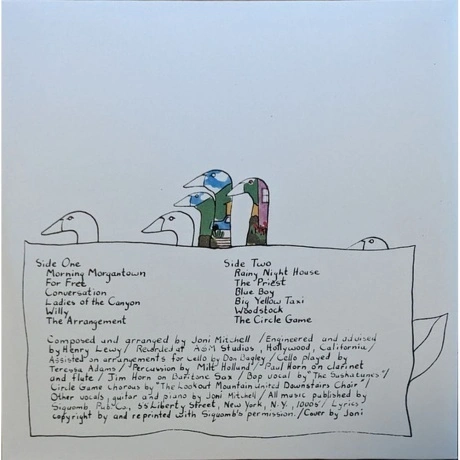 Side One
Morning Morgantown
For Free
Conversation
Ladies of the Canyon
Willy
The Arrangement
Side Two
Rainy Night House
The Priest
Blue Boy
Big Yellow Taxi
Woodstock
The Circle Game
Composed and arranged by Joni Mitchell / Engineered and advised
by Henry Lewy / Recorded at A&M Studios, Hollywood, California /
Assisted on arrangements for cello by Don Bagley / Cello played by
Teressa Adams / Percussion by Milt Holland / Paul Horn on clarinet
and flute / Jim Horn on Baritone Sax / Bop vocal by "The Saskatunes" /
Circle Game Chorous by "The Lookout Mountain United Downstairs Choir" /
Other vocals, guitar and piano by Joni Mitchell / All music published by
Siquomb Pub. Co, 55 Liberty Street, New York, N.Y., 10005 / Lyrics
copyright by and reprinted with Siquomb's permission. / Cover by Joni